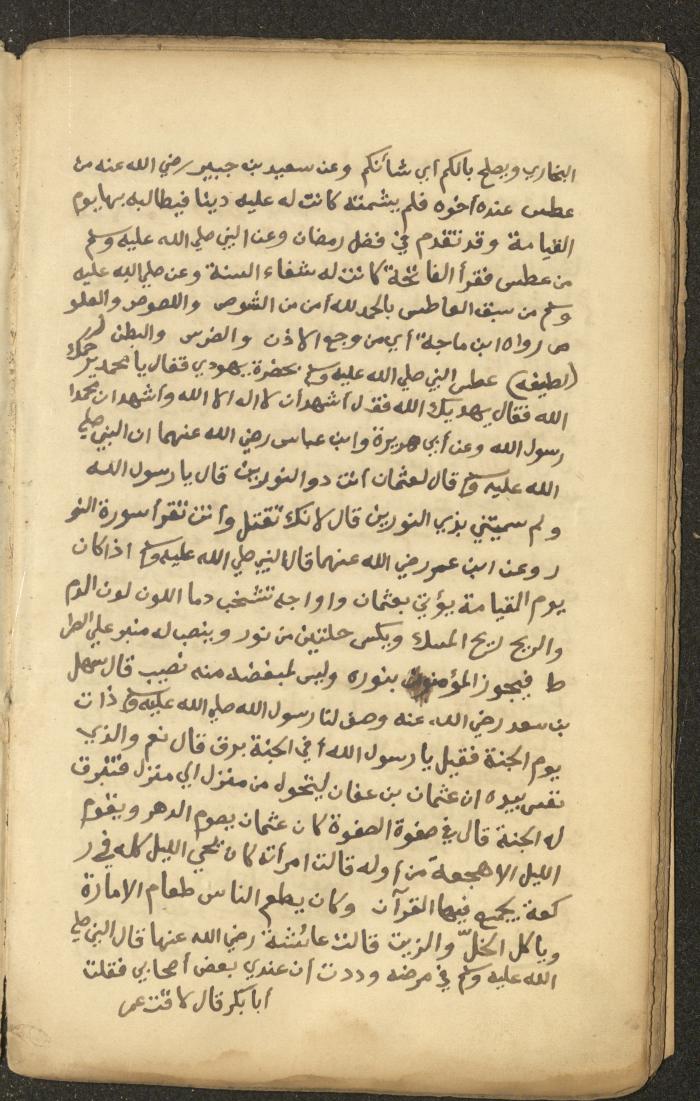 البخاري ويصلح بالكم أي شأنكم وعن سعيد بن جبير رضي الله عنه من
عطس عنده أخوه فلم يشمته كانت له عليه دينا فيطالبه بها يوم
القيامة وقد تقدم في فضل رمضان وعن النبي صلي الله عليه وسلم
من عطس فقرأ الفاتحة كانت له شفاء السنة وعن صلي الله عليه
وسلم من سبق العاطس بالحمد لله أمن من الشوص واللصوص والعلو
ص رواه ابن ماجة أي من وجع الاذن والضرس والبطن
(لطيفة) عطس النبي صلي الله عليه وسلم بحضرة يهودي فقال يا محمد يرحمك
الله فقال يهديك الله فقال أشهد أن لا اله الا الله وأشهد ان محمدا
رسول الله وعن أبي هريرة وابن عباس رضي الله عنهما ان النبي صلي
الله عليه وسلم قال لعثمان أنت ذو النورين قال يا رسول الله
ولم سميتني بذي النورين قال لانك تقتل وأنت تقرأ سورة النو
ر وعن ابن عمر رضي الله عنهما قال النبي صلي الله عليه وسلم اذا كان
يوم القيامة يؤتي بعثمان واواجه تشخب دما اللون لون الدم
والريح ريح المسك ويكسى حلتين من نور وينصب له منبر علي الصر
ط فيجوز المؤمنون بنوره وليس لمبغضه منه نصيب قال سهل
بن سعد رضي الله عنه وصف لنا رسول الله صلي الله عليه وسلم ذات
يوم الجنة فقيل يا رسول الله أفي الجنة برق قال نعم والذي
نفسي بيده ان عثمان بن عفان ليتحول من منزل الي منزل فتبرق
له الجنة قال في صفوة الصفوة كان عثمان يصوم الدهر ويقوم
الليل الا هجعة من أوله قالت امرأته كان يحي الليل كله في ر
كعة يجمع فيها القرآن وكان يطعم الناس طعام الامارة
وياكل الخلّ والزيت قالت عائشة رضي الله عنها قال النبي صلي
الله عليه وسلم في مرضه وددت أن عندي بعض أصحابي فقلت
أبا بكر قال لا قلت عمر